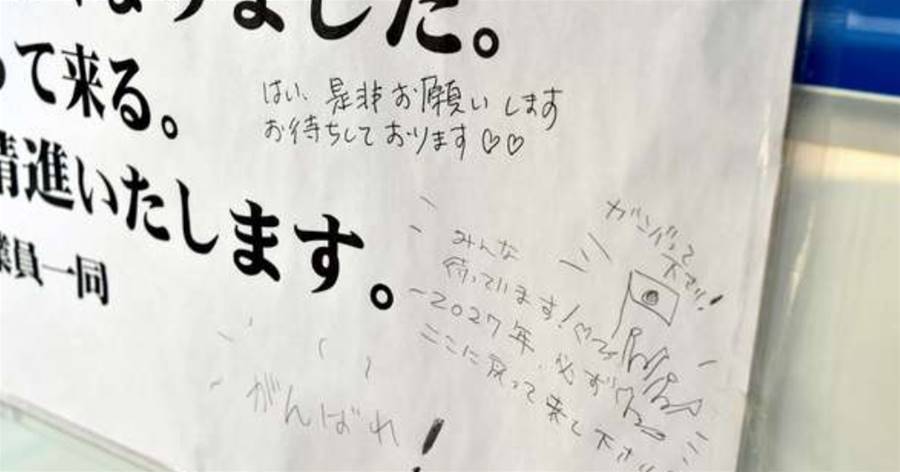 なりました。
って来る。
精進いたします。
業員一同
はい、是非お願いします
お待ちしております♡♡
ガンバって
下さい!
みんな
待っています!
2027年、必ず
ここに戻って来て下さい
がんばれ!